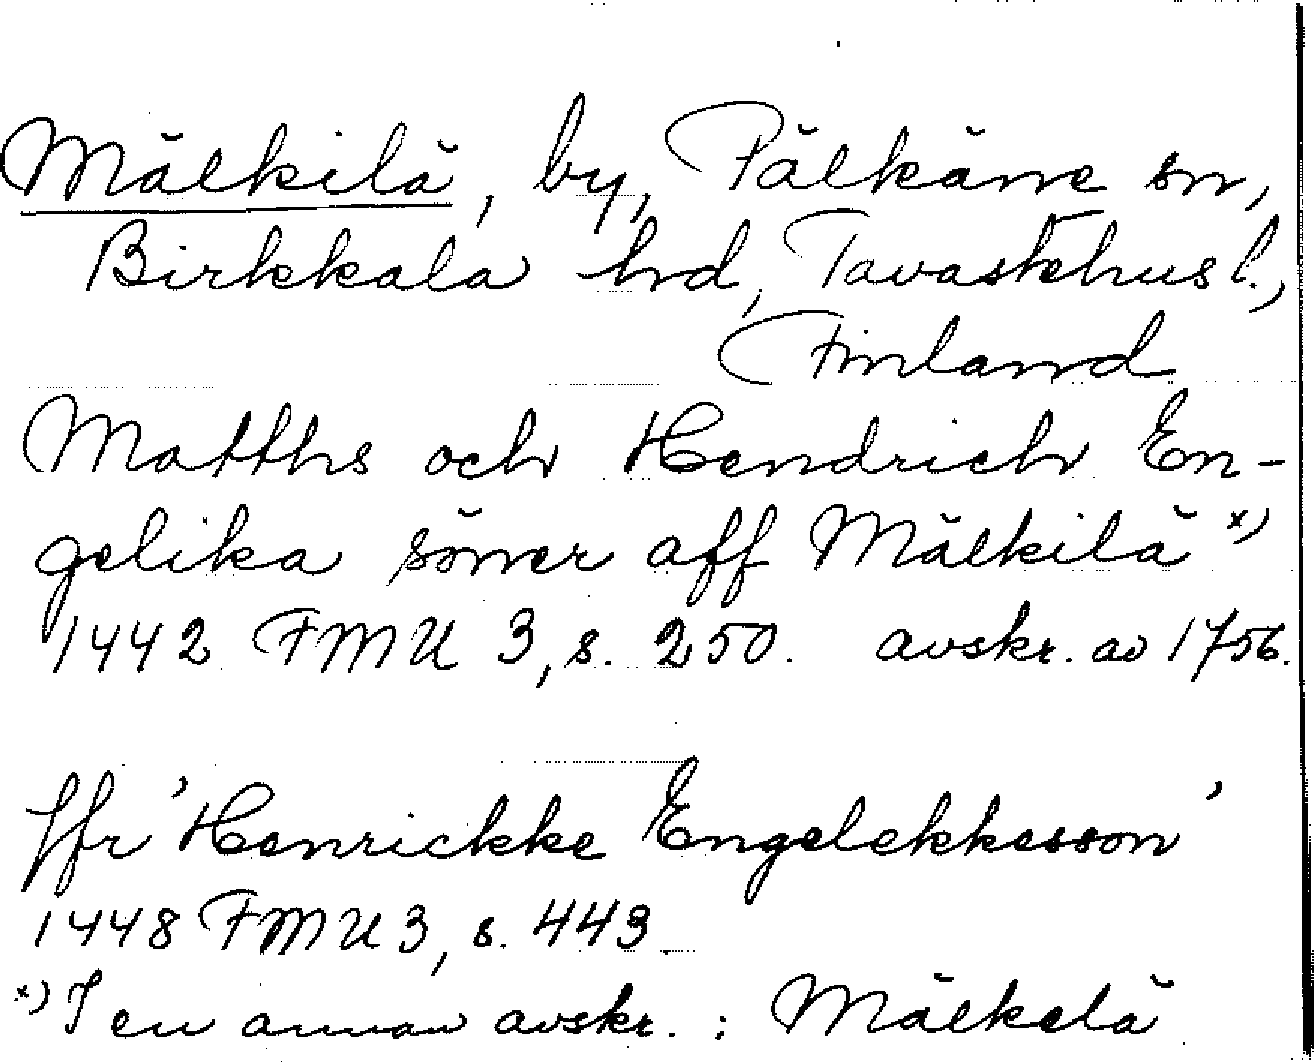 Mälkilä, by, Pälkäne sn,
Birkkala hrd, Tavastehus l.,
Finland
Matths och Hendrich En-
gelika söner aff Mälkilä x)
1442 FMU 3, s. 250. avskr. av 1756.
Jfr 'Henrickke Engelekkesson'
1448 FMU 3, s. 443
x) I en annan avskr. : Mälkelä